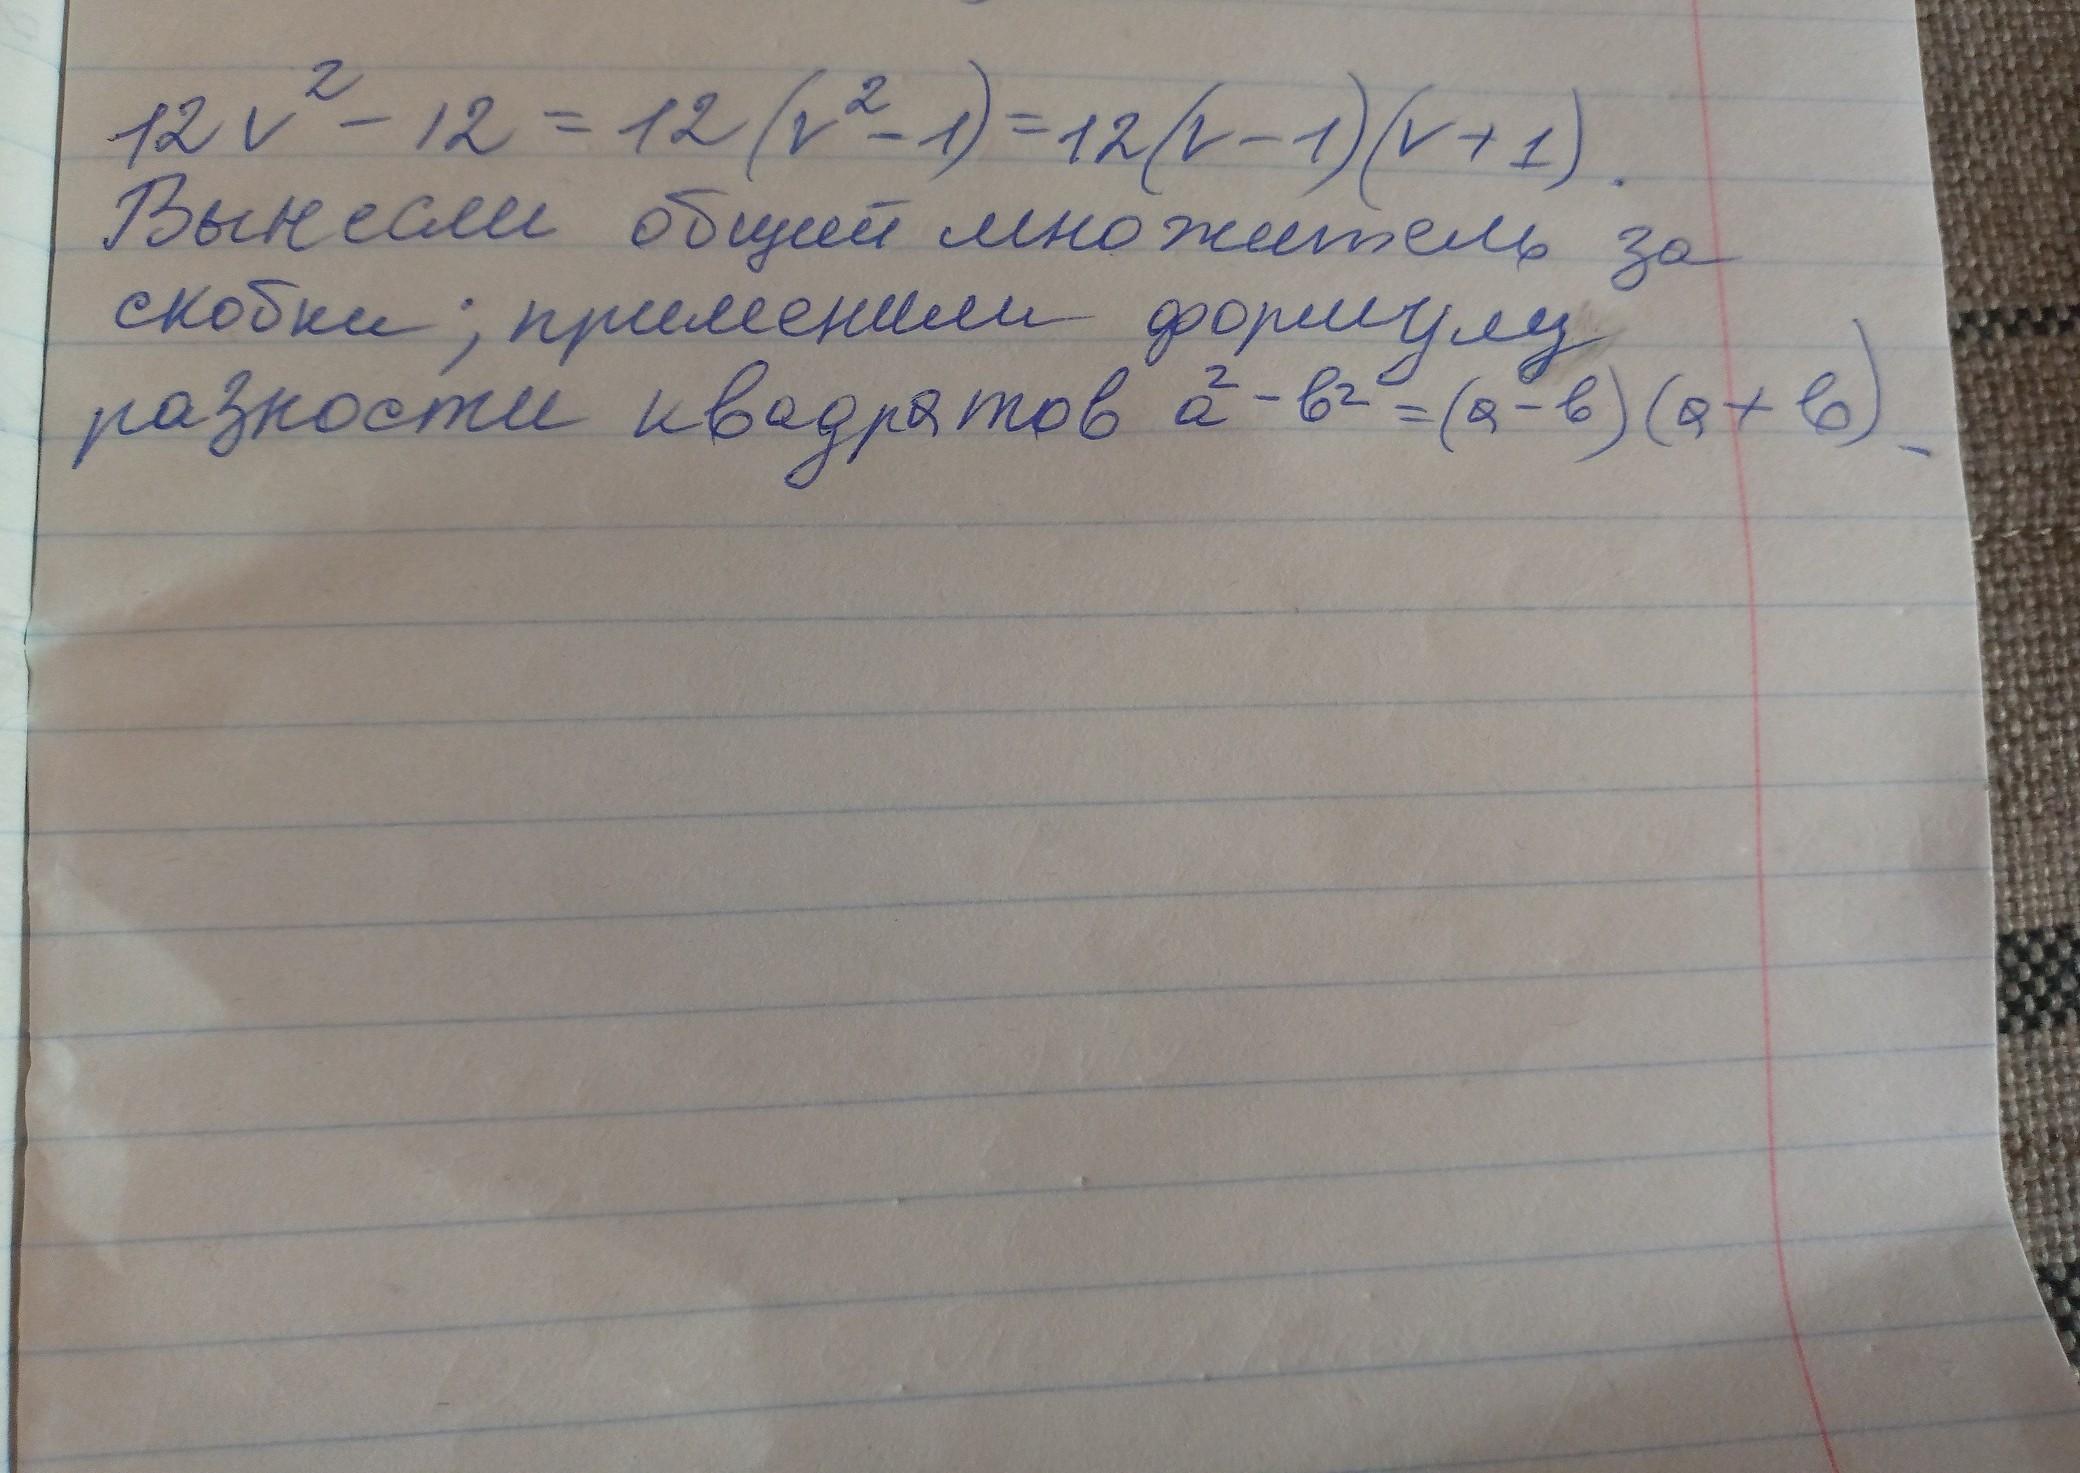 12v² - 12 = 12(v² - 1) = 12(v - 1)(v + 1).
Вынесли общий множитель за
скобки; применили формулу
разности квадратов a² - b² = (a - b)(a + b).